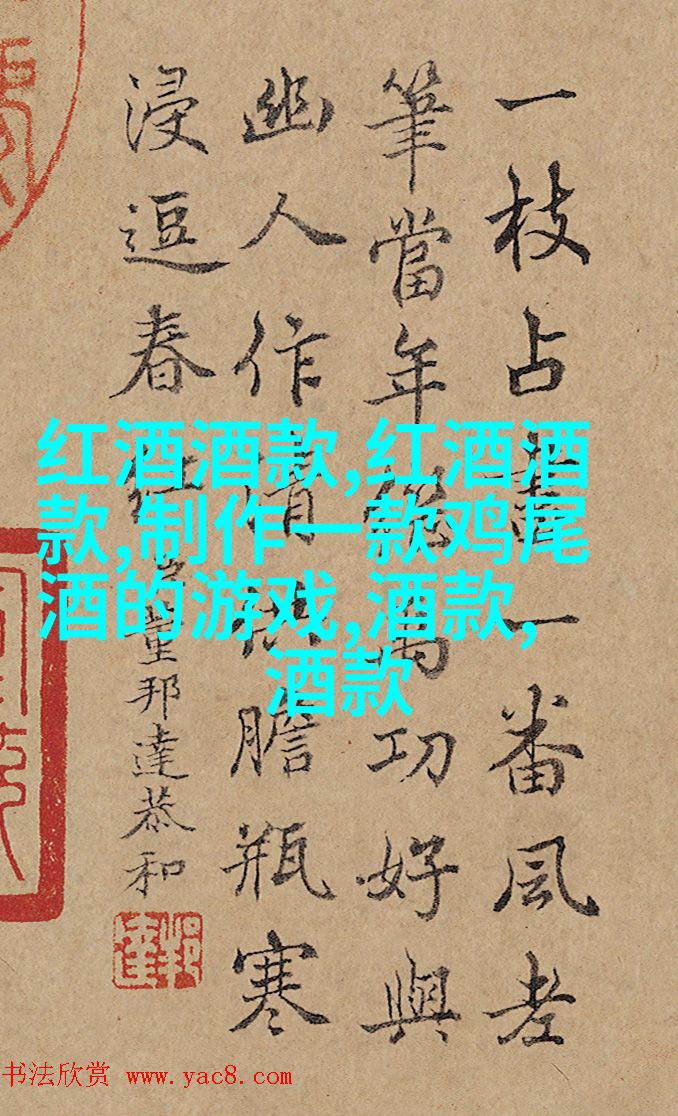 一枝占盡一番風老
筆當年絕功好與
幽人作清供膽瓶寒
浸逗春紅 臣董邦達恭和
红酒酒款,红酒酒
款,制作一款鸡尾
酒的游戏,酒款,
酒款
书法欣赏 www.yac8.com